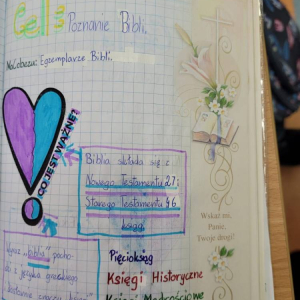 Cel: Poznanie Bibli.
NaCoBeZu: Egzemplarze Bibli.
CO JEST WAŻNE?
Biblia składa się z
Nowego Testamentu 27 i
Starego Testamentu 46
ksiąg.
Wskaż mi,
Panie,
Twoje drogi!
Wyraz "biblia" pocho-
dzi z języka greckiego
Pięcioksiąg
Księgi Historyczne
Księgi Mądrościowe